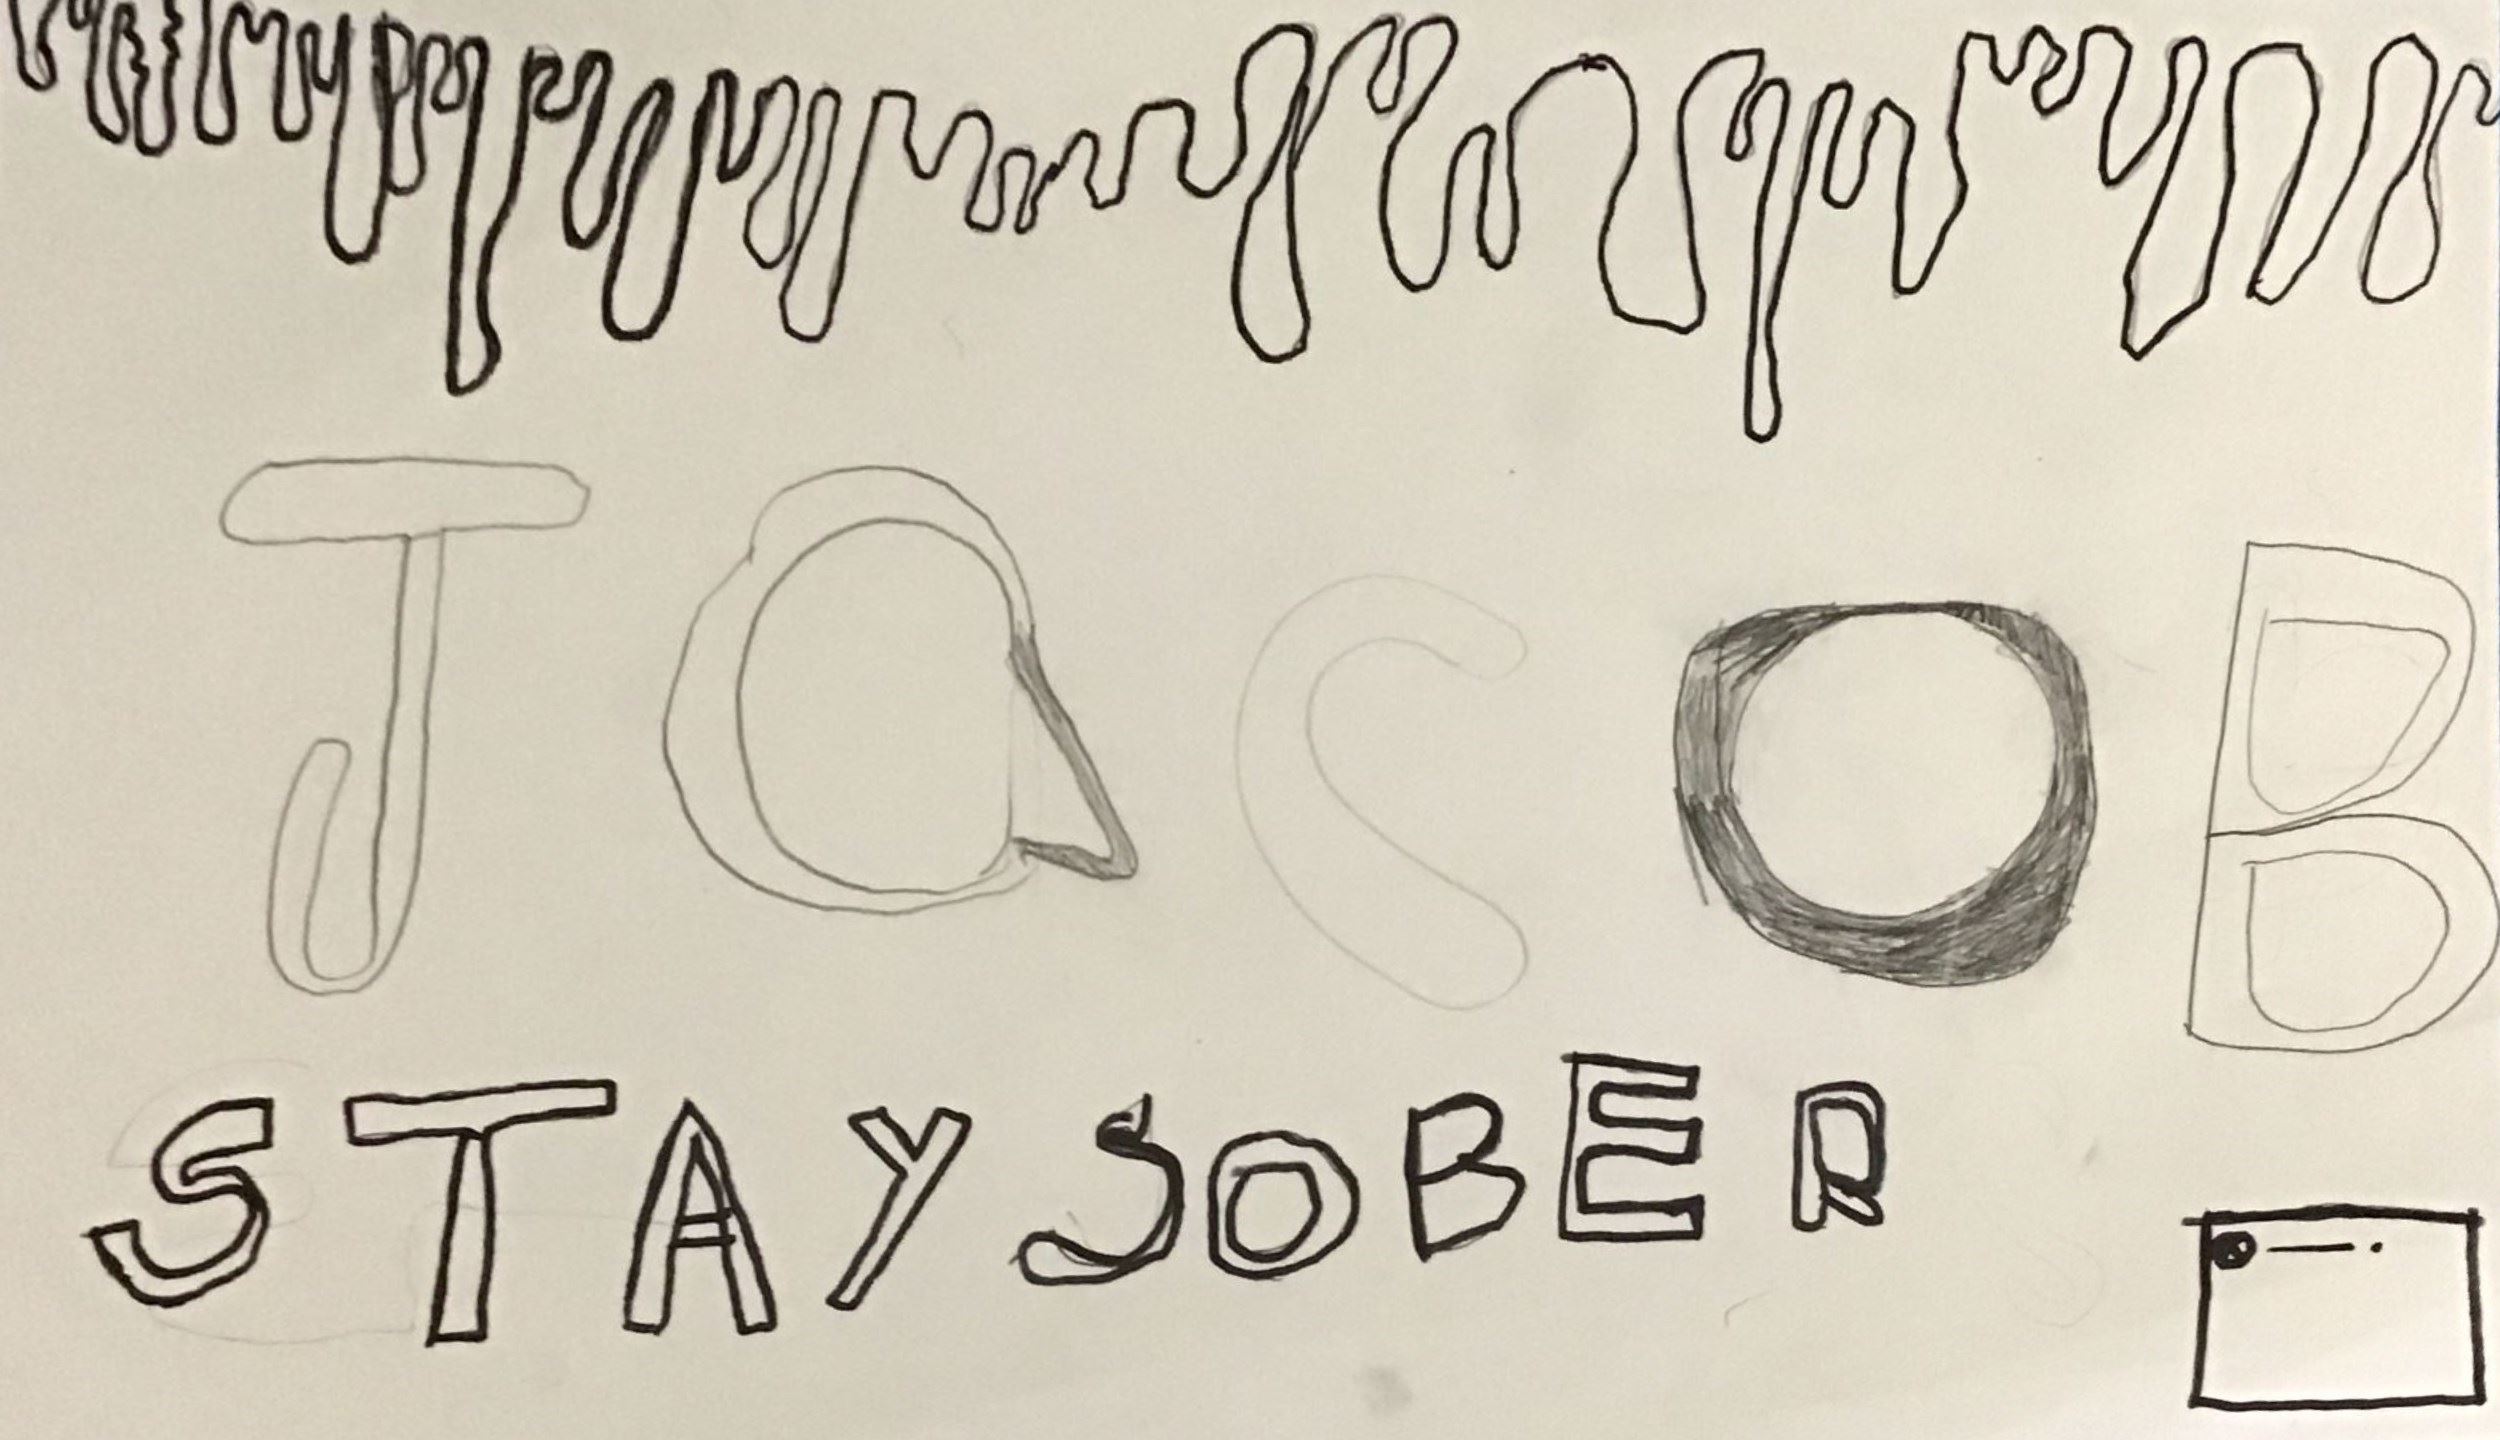 JacoB
STAY SOBER